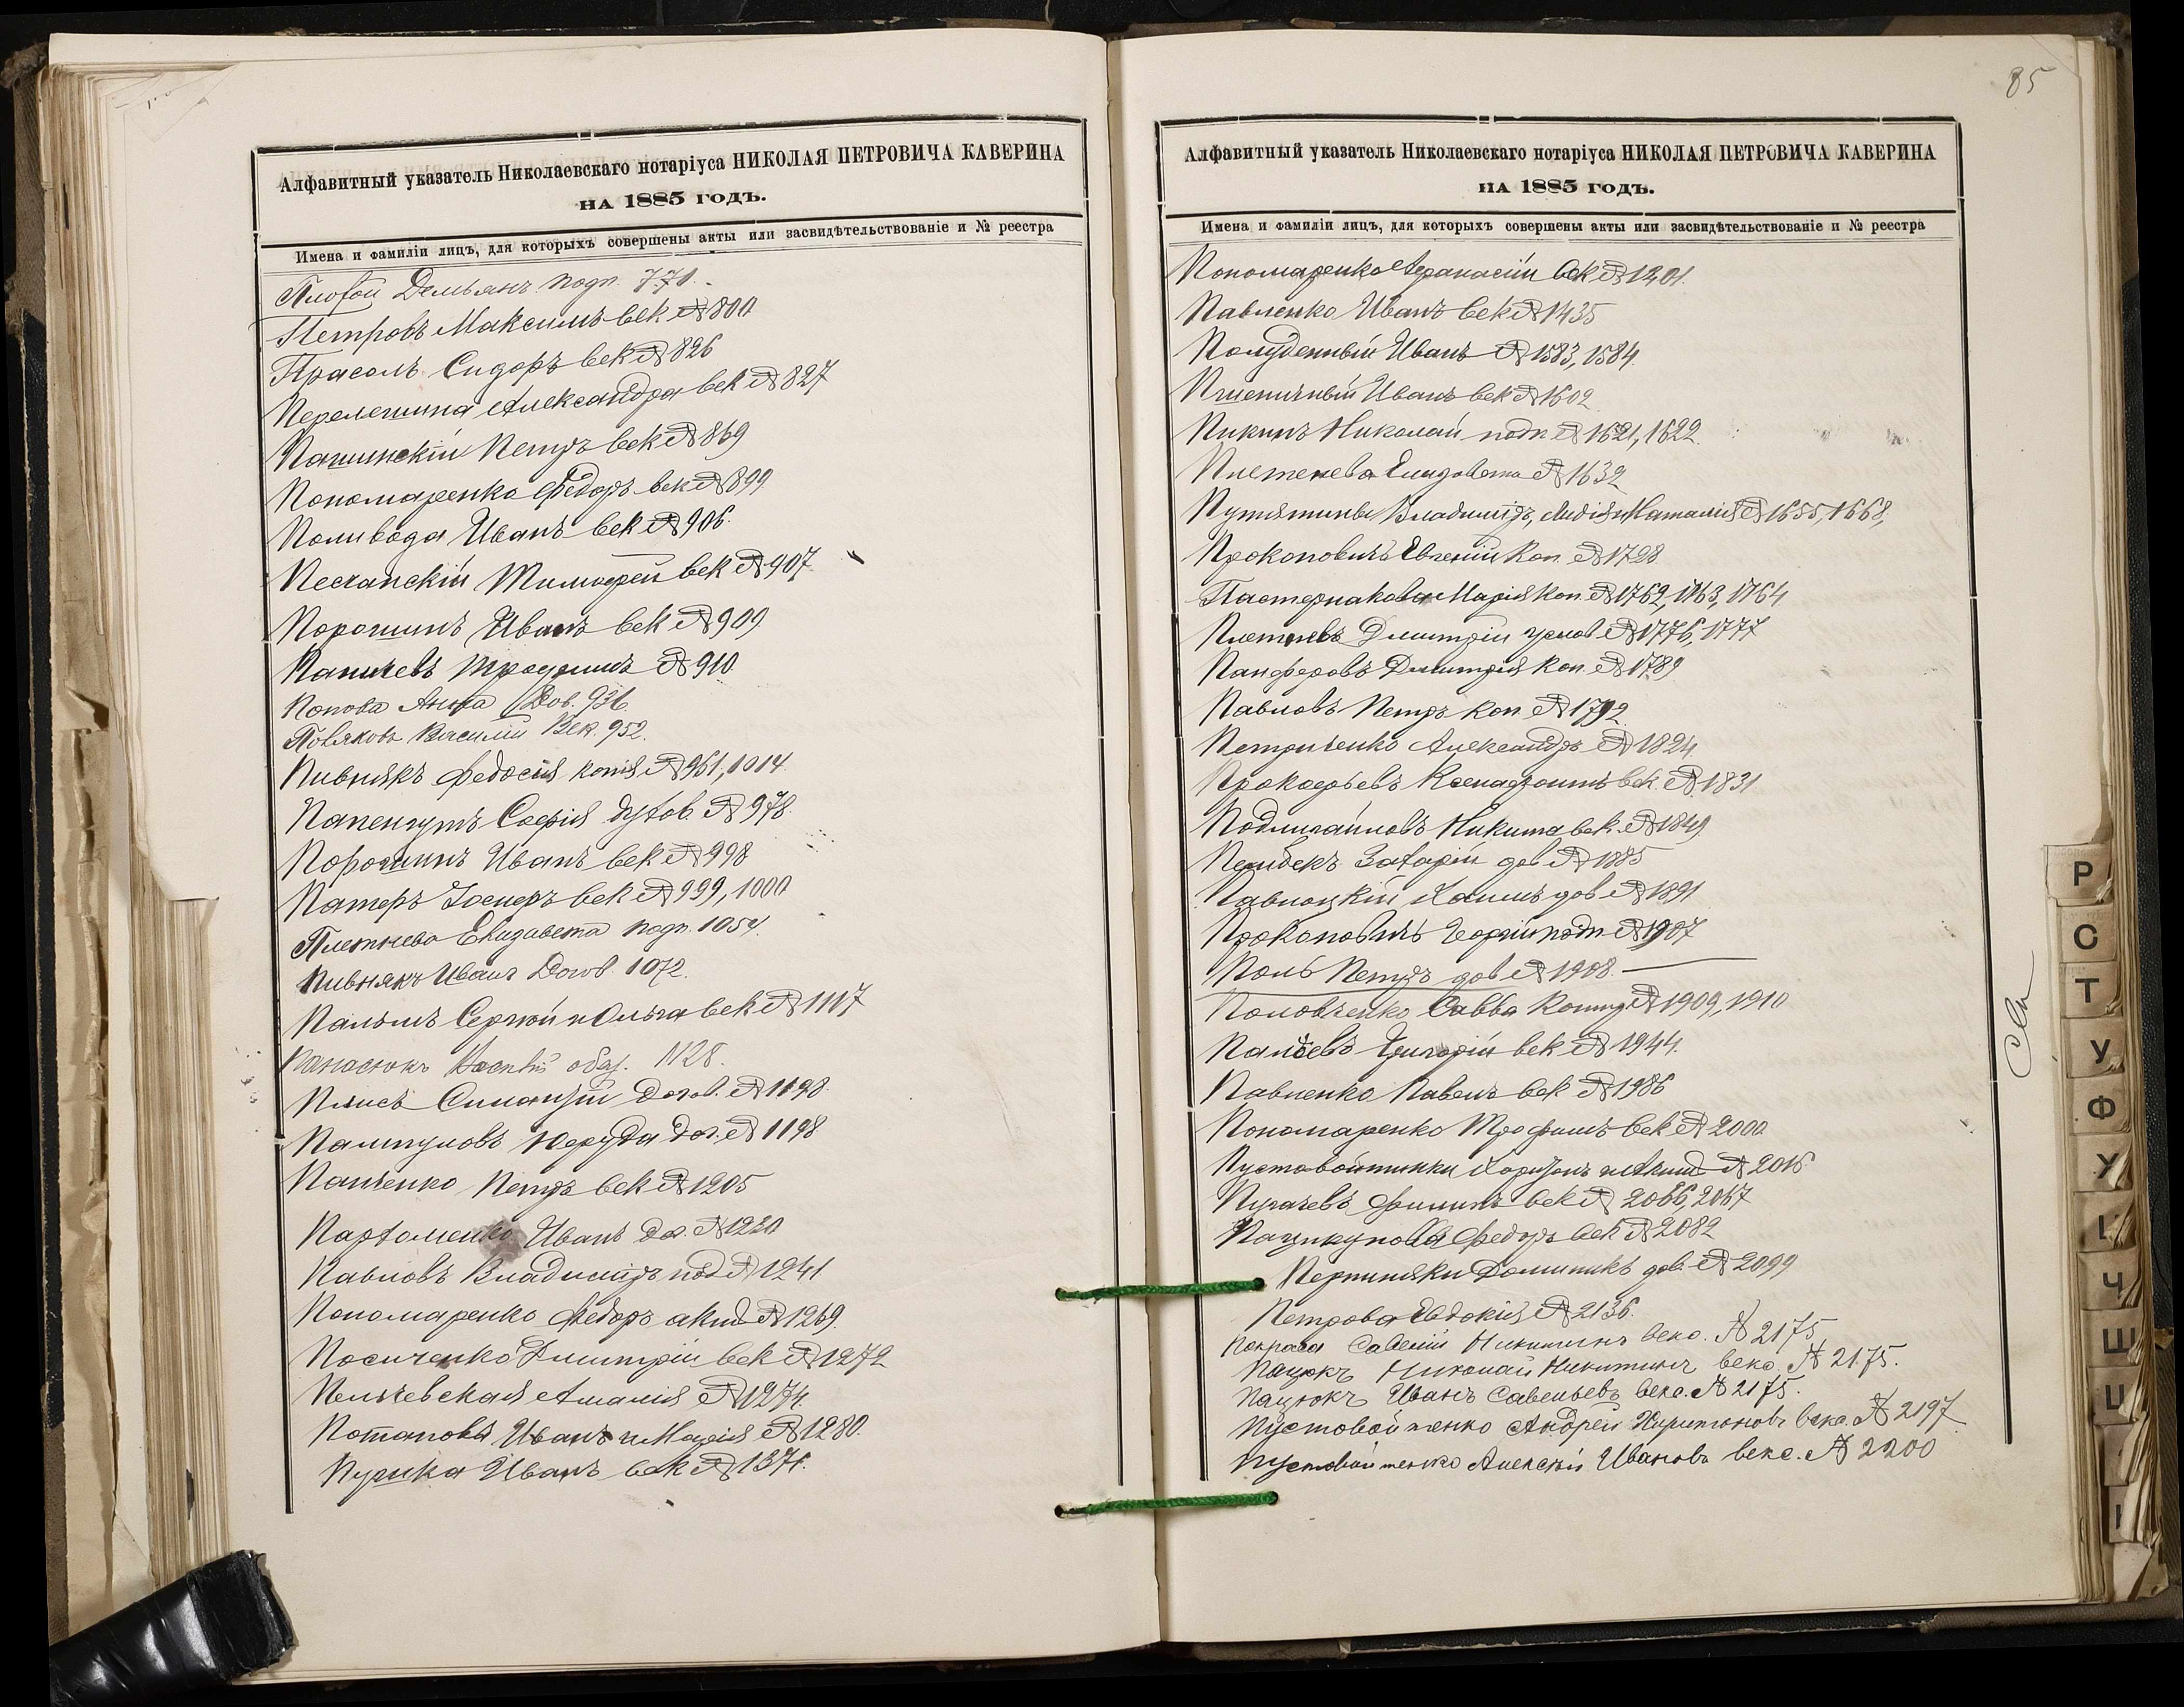 Алфавитный указатель Николаевскаго нотаріуса НИКОЛАЯ ПЕТРОВИЧА КАВЕРИНА
НА 1885 ГОДЪ.
Имена и фамиліи лицъ, для которыхъ совершены акты или засвидѣтельствованіе и № реестра
Демьянъ подп. 771.
Петровъ Максимъ век № 800
Прасолъ Сидоръ век № 826
Перелешина Александра век № 827
Пашинскій Петръ век № 869
Пономаренко Федоръ век № 899
Поливода Иванъ век № 906.
Песчанскій Тимофей век № 907
Порошинъ Иванъ век № 909
Паничевъ Трофимъ № 910
Попова Анна Дов. 931.
Поляковъ Василій Век. 952.
Пивнякъ Федосія копія № 961, 1014
Папенгутъ Софія духов № 978
Порошинъ Иванъ век № 998
Патеръ век № 999, 1000
Плетнева Елизавета подп. 1054.
Пивнякъ Иванъ Догов. 1072.
Пальмъ Сергѣй и Ольга век № 1117
Панасюкъ 1128.
Плисъ догов. № 1198
дог. № 1198
Пащенко Петръ век № 1205
Пархоменко Иванъ до. № 1220
Павловъ Владиміръ под № 1241
Пономаренко Федоръ акт № 1269.
Посиченко Дмитрій век № 1272
Пельчевская Амалія № 1274.
Потаповы Иванъ и Марія № 1280.
Пушка Иванъ век № 1371.
85
Алфавитный указатель Николаевскаго нотаріуса НИКОЛАЯ ПЕТРОВИЧА КАВЕРИНА
НА 1885 ГОДЪ.
Имена и фамиліи лицъ, для которыхъ совершены акты или засвидѣтельствованіе и № реестра
Пономаренко Афанасій век № 1401.
Павленко Иванъ век № 1435
Полуденный Иванъ № 1583, 1584.
Пшеничный Иванъ век № 1602
Пикинъ Николай подп № 1621, 1622.
Плетенева Елизавета № 1632
Путятины Владиміръ, Лидія и Наталія № 1655, 1668,
Прокоповичъ Евгеній Коп. № 1728
Пастернакова Марія Коп. № 1762, 1763, 1764
Плетневъ Дмитрій услов № 1776, 1777
Панферовъ Дмитрій Коп. № 1789
Павловъ Петръ Коп № 1792.
Петриченко Александръ № 1824
Прокофьевъ Ксенофонтъ век. № 1831
Подмигайловъ Никита век. № 1849
Захарій дов № 1885
Павлоцкій Хаимъ дов № 1891
Прокоповичъ Георгій подп № 1907
Поль Петръ дов № 1908.
Половченко Савва № 1909, 1910
Григорій век № 1944.
Павленко Павелъ век № 1986
Пономаренко Трофимъ век № 2000
Пустовойтинки Харитонъ и № 2016
Пугачевъ Филиппъ век № 2066, 2067
Федоръ век № 2082
Доминикъ дов. № 2099
Петрова Евдокія № 2136.
Савелій Никитинъ векс. № 2175
Пацюкъ Николай Никитинъ векс. № 2175.
Пацюкъ Иванъ Савельевъ векс. № 2175.
Пустовойтенко Андрей Харитоновъ векс. № 2197
Пустовойтенко Алексѣй Ивановъ векс. № 2200
Р
С
Т
У
Ф
Х
Ц
Ч
Ш
Щ